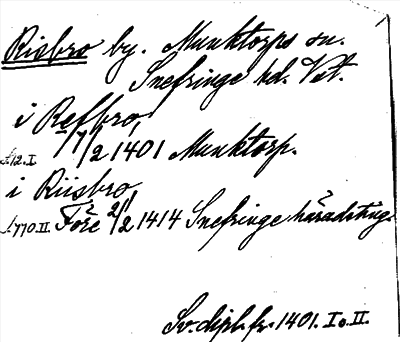 Risbro by. Munktorps sn.
Snefringe hd. Vst.
i Refbro,
A12.I. 17/2 1401 Munktorp.
i Riisbro,
A770.II. Före 2/2 1414 Snefringe häradsting
Sv. dipl. fr. 1401. I o. II.